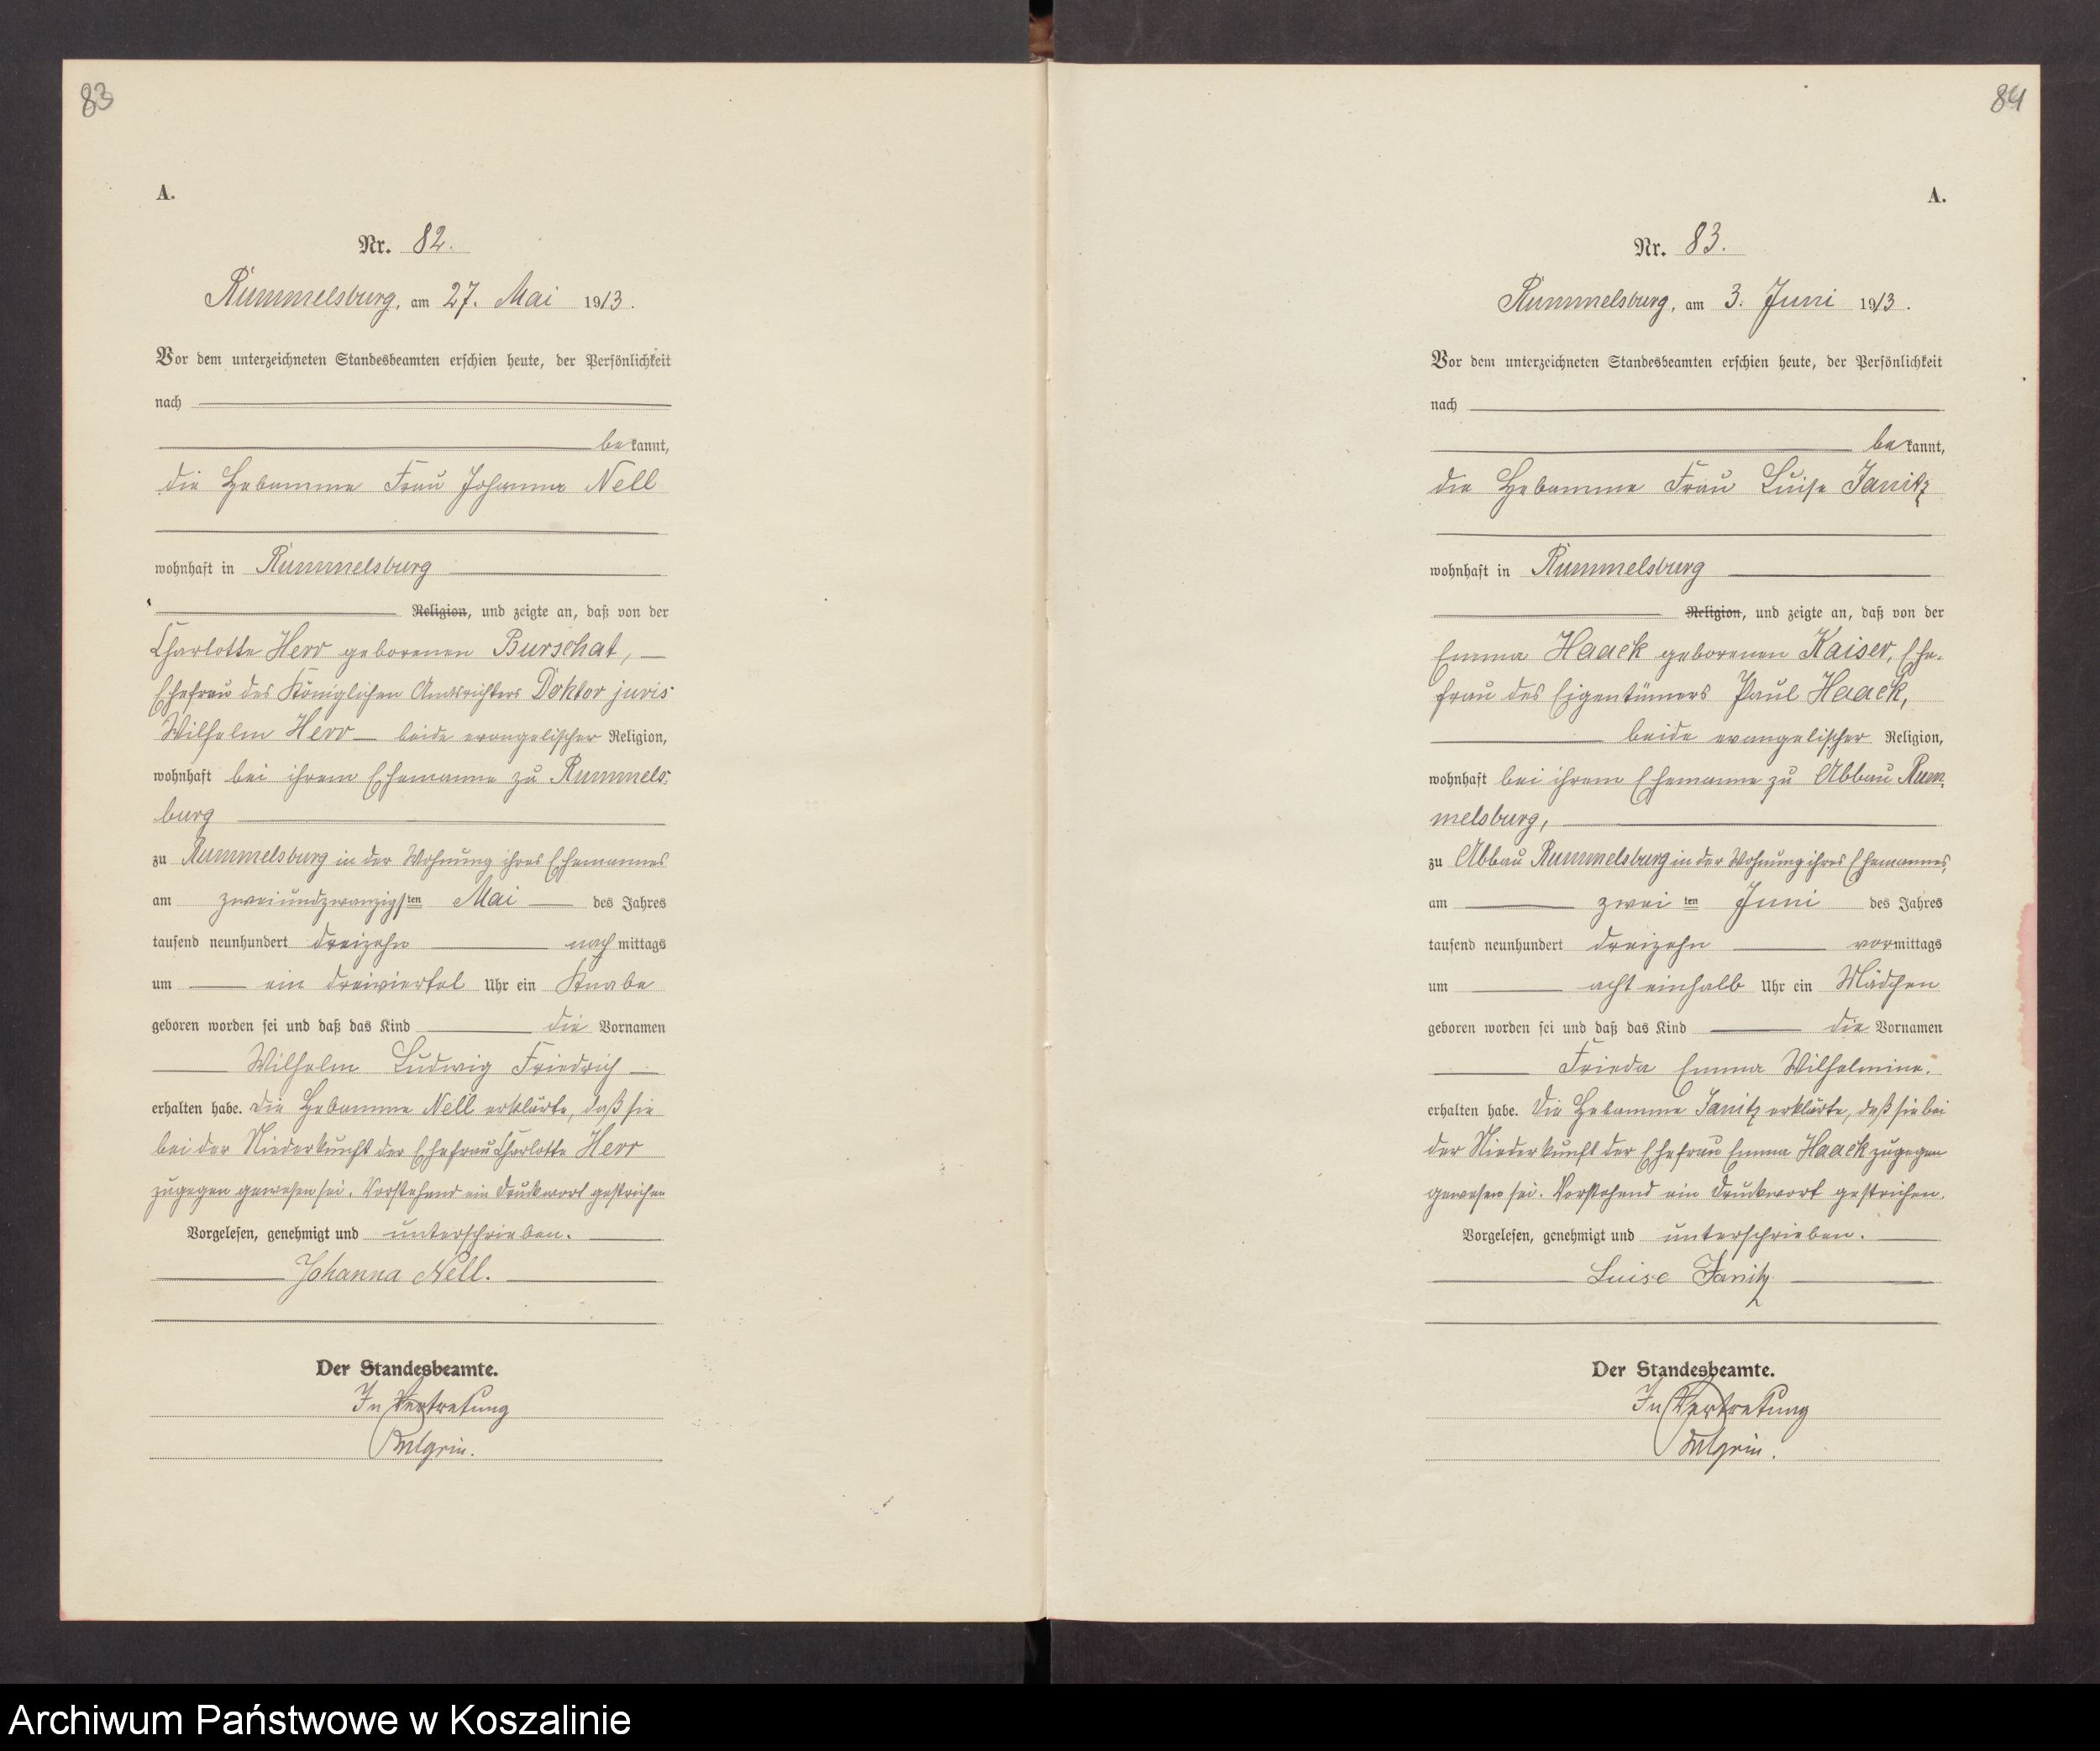 83
A.
Nr. 82.
Rummelsburg, am 27. Mai 1913.
Vor dem unterzeichneten Standesbeamten erschien heute, der Persönlichkeit
nach
bekannt,
die Hebamme Frau Johanna Nell
wohnhaft in Rummelsburg
Religion, und zeigte an, daß von der
Charlotte Herr geborenen Burschat,
Ehefrau des Königlichen Amtsrichters Doktor juris
Wilhelm Herr beide evangelischer Religion,
wohnhaft bei ihrem Ehemanne zu Rummels-
burg
zu Rummelsburg in der Wohnung ihres Ehemannes
am zweiundzwanzigsten Mai des Jahres
tausend neunhundert dreizehn nachmittags
um ein dreiviertel Uhr ein Knabe
geboren worden sei und daß das Kind die Vornamen
Wilhelm Ludwig Friedrich
erhalten habe. Die Hebamme Nell erklärte, daß sie
bei der Niederkunft der Ehefrau Charlotte Herr
zugegen gewesen sei. Vorstehend ein Druckwort gestrichen
Vorgelesen, genehmigt und unterschrieben.
Johanna Nell.
Der Standesbeamte.
In Vertretung
84
A.
Nr. 83.
Rummelsburg, am 3. Juni 1913.
Vor dem unterzeichneten Standesbeamten erschien heute, der Persönlichkeit
nach
bekannt,
die Hebamme Frau Luise Janitz
wohnhaft in Rummelsburg
Religion, und zeigte an, daß von der
Emma Haack geborenen Kaiser, Ehe-
frau des Eigentümers Paul Haack,
beide evangelischer Religion,
wohnhaft bei ihrem Ehemanne zu Abbau Rum-
melsburg,
zu Abbau Rummelsburg in der Wohnung ihres Ehemannes,
am zweiten Juni des Jahres
tausend neunhundert dreizehn vormittags
um acht einhalb Uhr ein Mädchen
geboren worden sei und daß das Kind die Vornamen
Frieda Emma Wilhelmine.
erhalten habe. Die Hebamme Janitz erklärte, daß sie bei
der Niederkunft der Ehefrau Emma Haack zugegen
gewesen sei. Vorstehend ein Druckwort gestrichen.
Vorgelesen, genehmigt und unterschrieben.
Luise Janitz
Der Standesbeamte.
In Vertretung
Archiwum Państwowe w Koszalinie